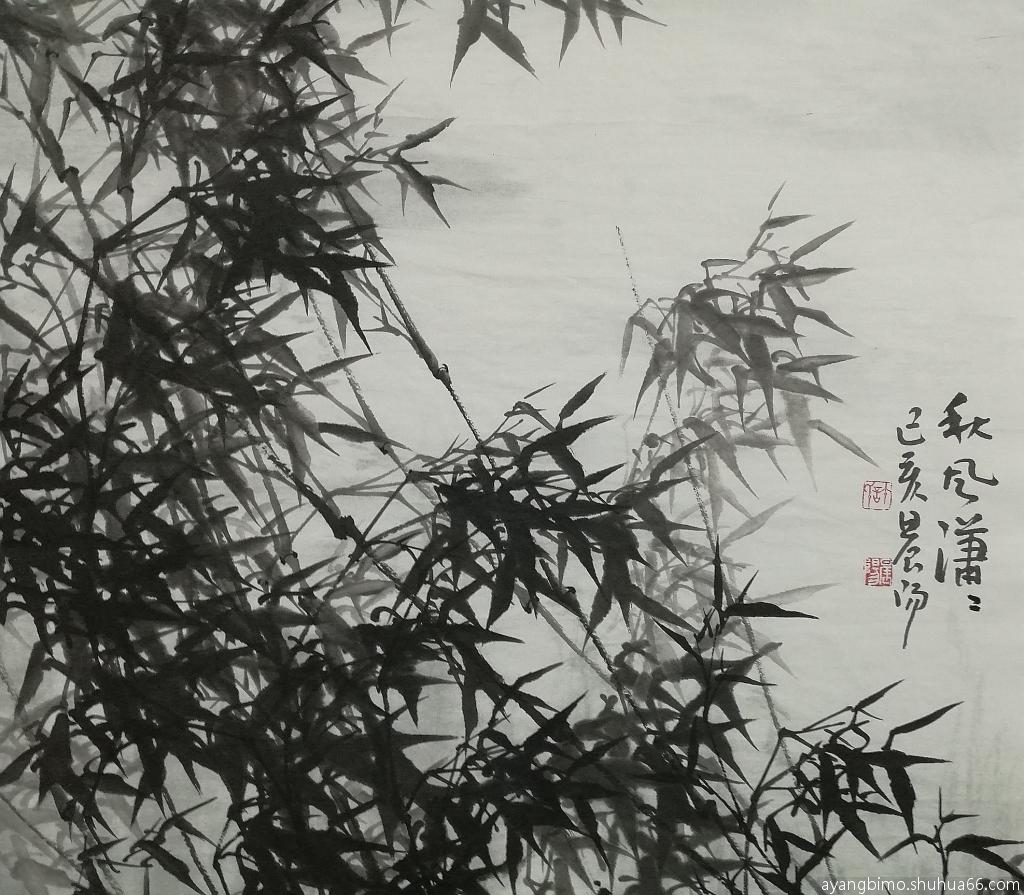 秋风潇〻
己亥晨阳
ayangbimo.shuhua66.com